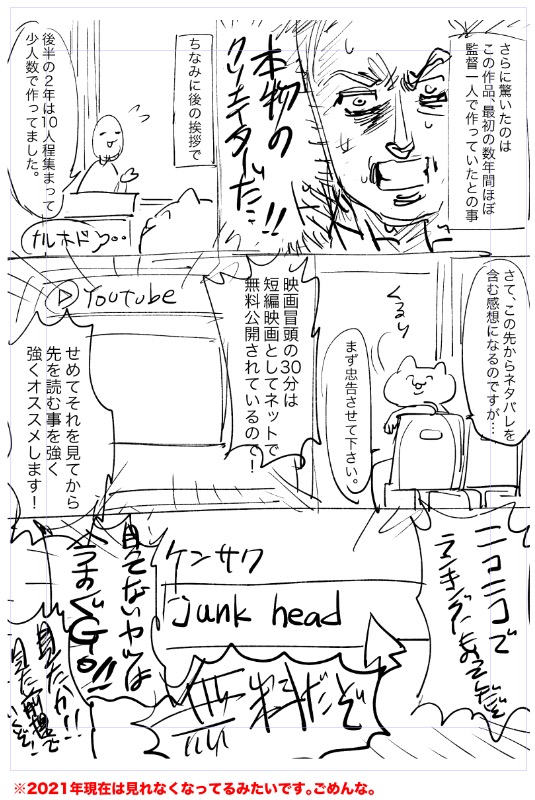 さらに驚いたのは
この作品、最初の数年間ほぼ
監督一人で作っていたとの事
本物の
クリエイターだ…!!
ちなみに後の挨拶で
後半の2年は10人程集まって
少人数で作ってました。
ナルホドゥ…
さて、この先からネタバレを
含む感想になるのですが…
くるり
まず忠告させて下さい。
映画冒頭の30分は
短編映画としてネットで
無料公開されているので!
Youtube
せめてそれを見てから
先を読む事を強く
強くオススメします!
ニコニコで
ケンサク
junk head
無料だぞ
見てないヤツは
今すぐGO!!
見たか!!
見た前提で
いくぞ!
※2021年現在は見れなくなってるみたいです。ごめんな。